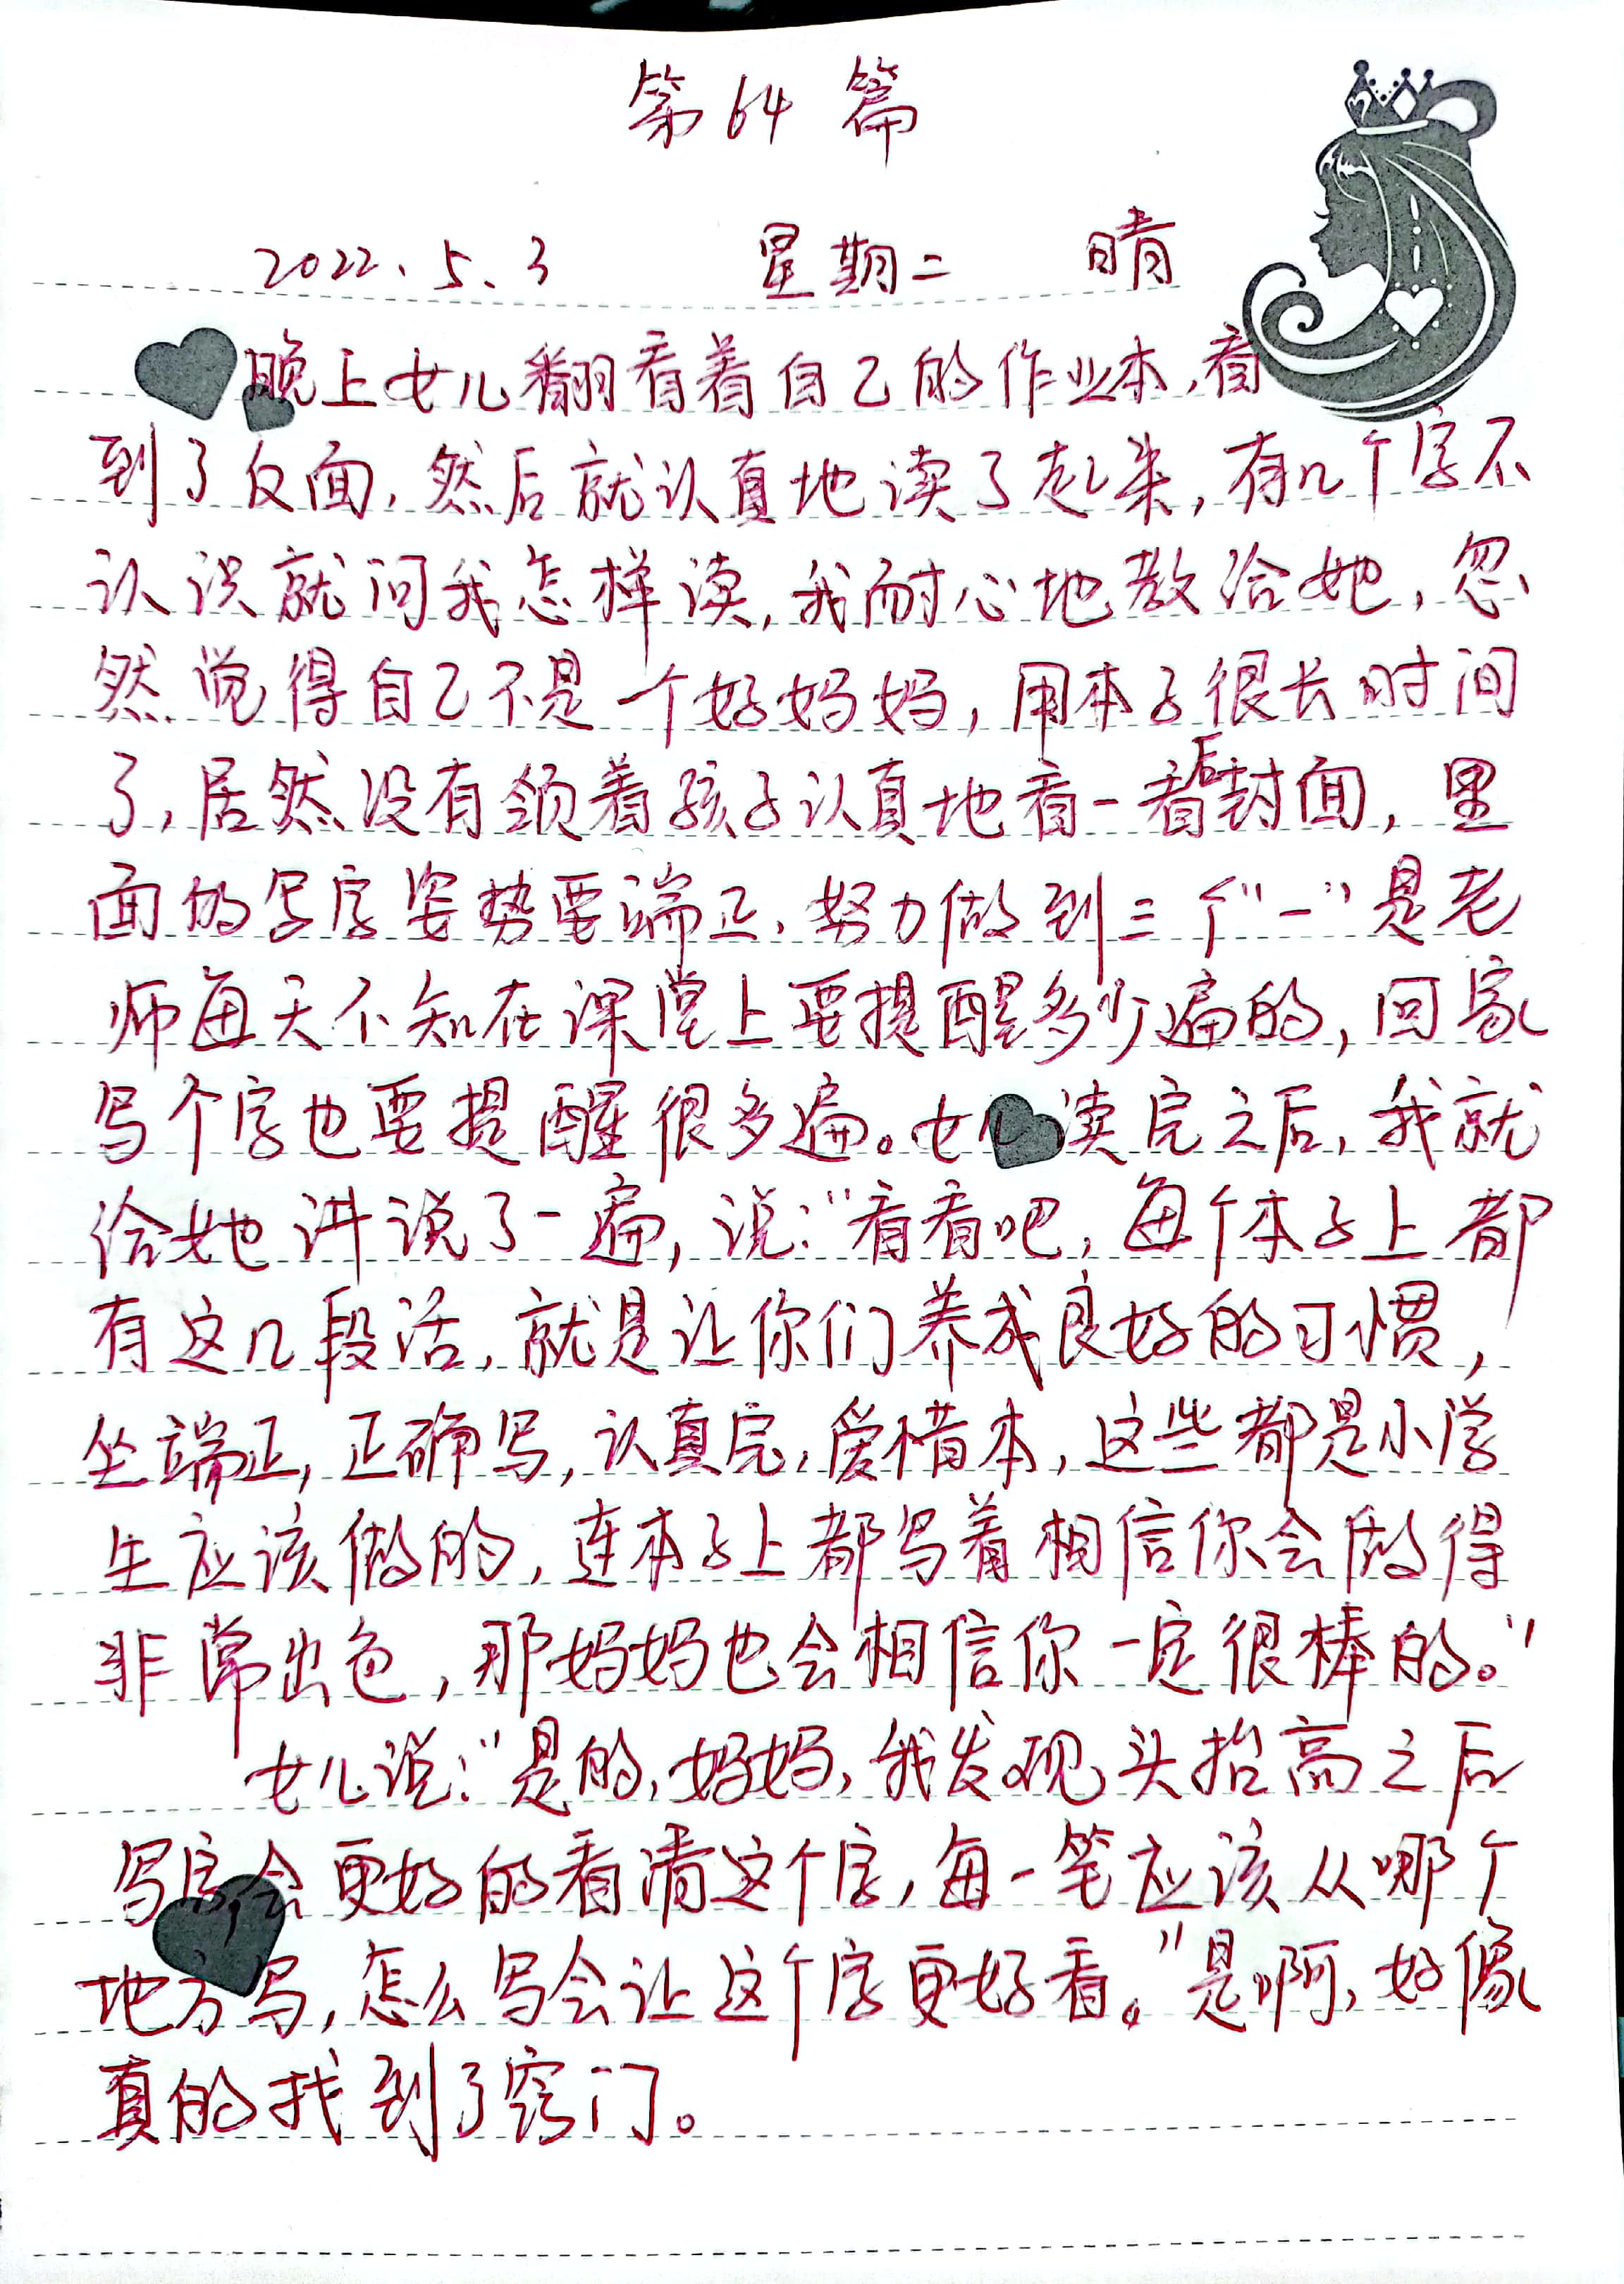 第64篇
2022、5、3 星期二 晴
晚上女儿翻看着自己的作业本,看
到了反面,然后就认真地读了起来,有几个字不
认识就问我怎样读,我耐心地教给她,忽
然觉得自己不是一个好妈妈,用本子很长时间
了,居然没有领着孩子认真地看一看后封面,里
面的写字姿势要端正、努力做到三个“一”是老
师每天不知在课堂上要提醒多少遍的,回家
写个字也要提醒很多遍。女儿读完之后,我就
给她讲说了一遍,说:“看看吧,每个本子上都
有这几段话,就是让你们养成良好的习惯,
坐端正,正确写,认真完,爱惜本,这些都是小学
生应该做的,连本子上都写着相信你会做得
非常出色,那妈妈也会相信你一定很棒的。”
女儿说:“是的,妈妈,我发现头抬高之后
写字会更好的看清这个字,每一笔应该从哪个
地方写,怎么写会让这个字更好看。”是啊,好像
真的找到了窍门。